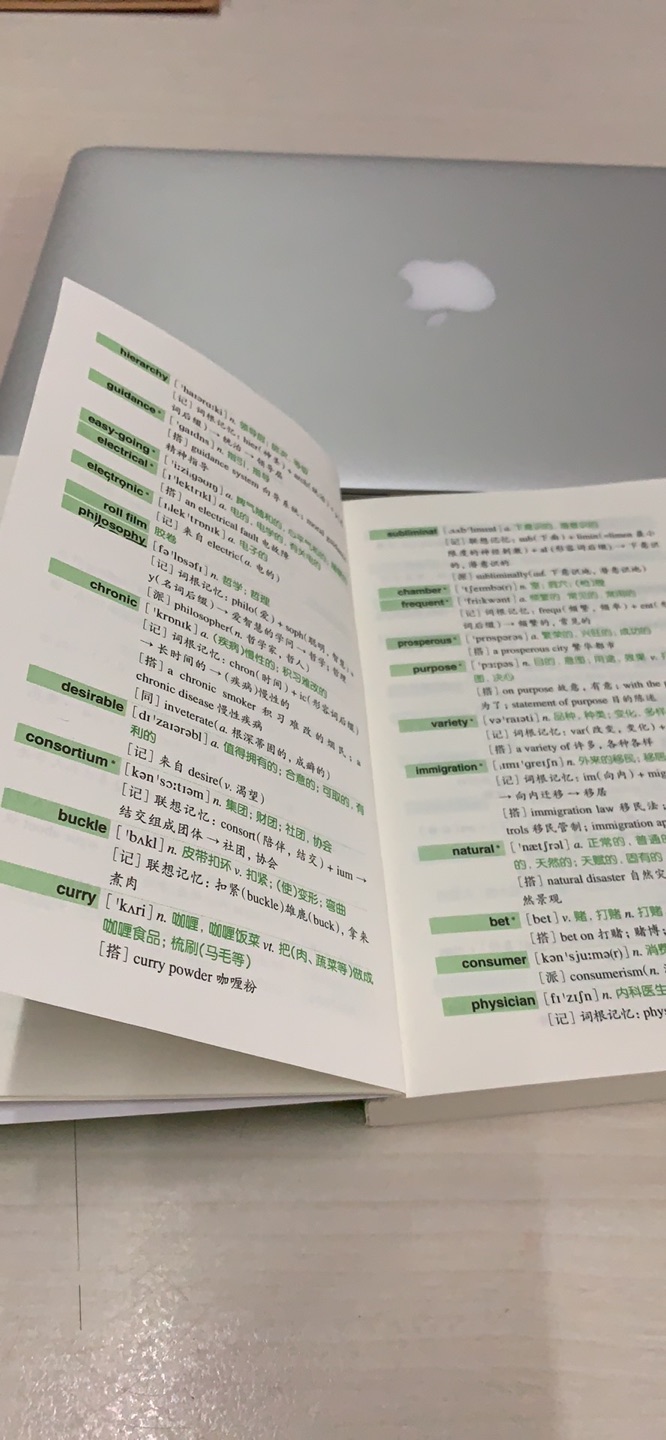 hierarchy ['haɪərɑːki] n. 领导层；层次，等级
[记] 词根记忆：hier(神圣) + arch(统治) +
词后缀) → 统治 → 领导层
guidance* ['gaɪdns] n. 指引，指导
[搭] guidance system 向导系统；moral guidance
精神指导
easy-going* ['iːzi,gəʊɪŋ] a. 脾气随和的，心平气和的，
electrical* [ɪ'lektrɪkl] a. 电的，电学的，有关电的
[搭] an electrical fault 电故障
electronic* [ɪ,lek'trɒnɪk] a. 电子的
[记] 来自 electric(a. 电的)
roll film 胶卷
philosophy [fə'lɒsəfi] n. 哲学；哲理
[记] 词根记忆：philo(爱) + soph(聪明，智慧) +
y(名词后缀) → 爱智慧的学问 → 哲学；哲理
[派] philosopher(n. 哲学家，哲人)
chronic ['krɒnɪk] a. (疾病)慢性的；积习难改的
[记] 词根记忆：chron(时间) + ic(形容词后缀)
→ 长时间的 → (疾病)慢性的
[搭] a chronic smoker 积习难改的烟民；a
chronic disease 慢性疾病
[同] inveterate(a. 根深蒂固的，成癖的)
desirable [dɪ'zaɪərəbl] a. 值得拥有的；合意的；可取的，有
利的
[记] 来自 desire(v. 渴望)
consortium* [kən'sɔːtɪəm] n. 集团；财团；社团，协会
[记] 联想记忆：consort(陪伴，结交) + ium →
结交组成团体 → 社团，协会
buckle ['bʌkl] n. 皮带扣环 v. 扣紧；(使)变形；弯曲
[记] 联想记忆：扣紧(buckle)雄鹿(buck)，拿来
煮肉
curry ['kʌri] n. 咖喱，咖喱饭菜 vt. 把(肉、蔬菜等)做成
咖喱食品；梳刷(马毛等)
[搭] curry powder 咖喱粉
subliminal [,sʌb'lɪmɪnl] a. 下意识的，潜意识的
[记] 联想记忆：sub(下面) + limin(=limen 最小
限度的神经刺激) + al(形容词后缀) → 下意识
的，潜意识的
[派] subliminally(ad. 下意识地，潜意识地)
chamber* ['tʃeɪmbə(r)] n. 室，洞穴；(枪)膛
frequent* ['friːkwənt] a. 频繁的，常见的，常用的
[记] 词根记忆：frequ(频繁，频率) + ent(形
词后缀) → 频繁的，常见的
prosperous* ['prɒspərəs] a. 繁荣的，兴旺的，成功的
[搭] a prosperous city 繁华都市
purpose* ['pɜːpəs] n. 目的，意图；用途，效果 v. 打
图，决心
[搭] on purpose 故意，有意；with the p
为了；statement of purpose 目的陈述
variety* [və'raɪəti] n. 品种，种类；变化，多样
[记] 词根记忆：var(改变，变化) +
[搭] a variety of 许多，各种各样
immigration* [,ɪmɪ'greɪʃn] n. 外来的移民；移居
[记] 词根记忆：im(向内) + mig
→ 向内迁移 → 移居
[搭] immigration law 移民法
trols 移民管制；immigration ap
natural* ['nætʃrəl] a. 正常的，普通的
的，天然的；天赋的，固有的
[搭] natural disaster 自然灾
然景观
bet* [bet] v. 赌，打赌 n. 打赌
[搭] bet on 打赌；赌博；
consumer [kən'sjuːmə(r)] n. 消费
[派] consumerism(n.
physician [fɪ'zɪʃn] n. 内科医生
[记] 词根记忆：phys